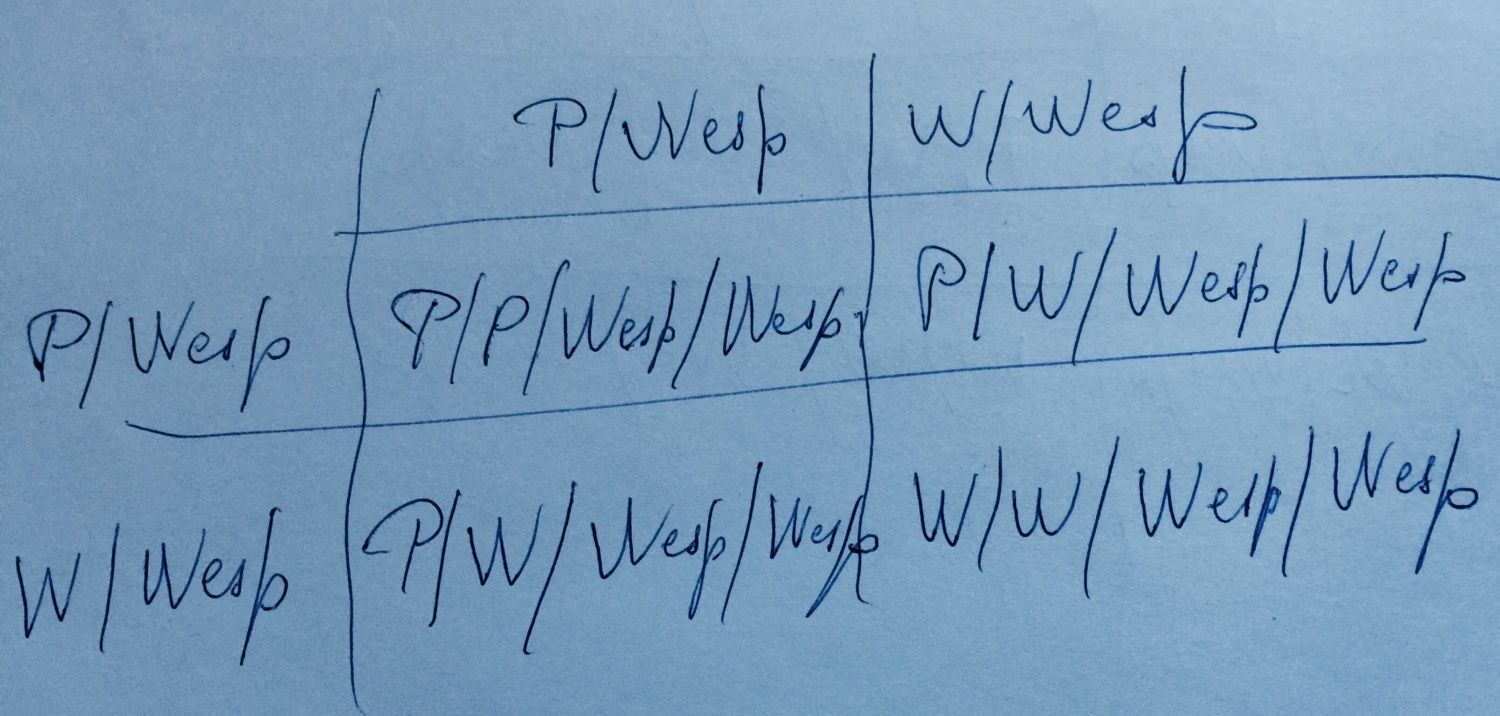 P/Wesp W/Wesp
P/Wesp P/P/Wesp/Wesp P/W/Wesp/Wesp
W/Wesp P/W/Wesp/Wesp W/W/Wesp/Wesp